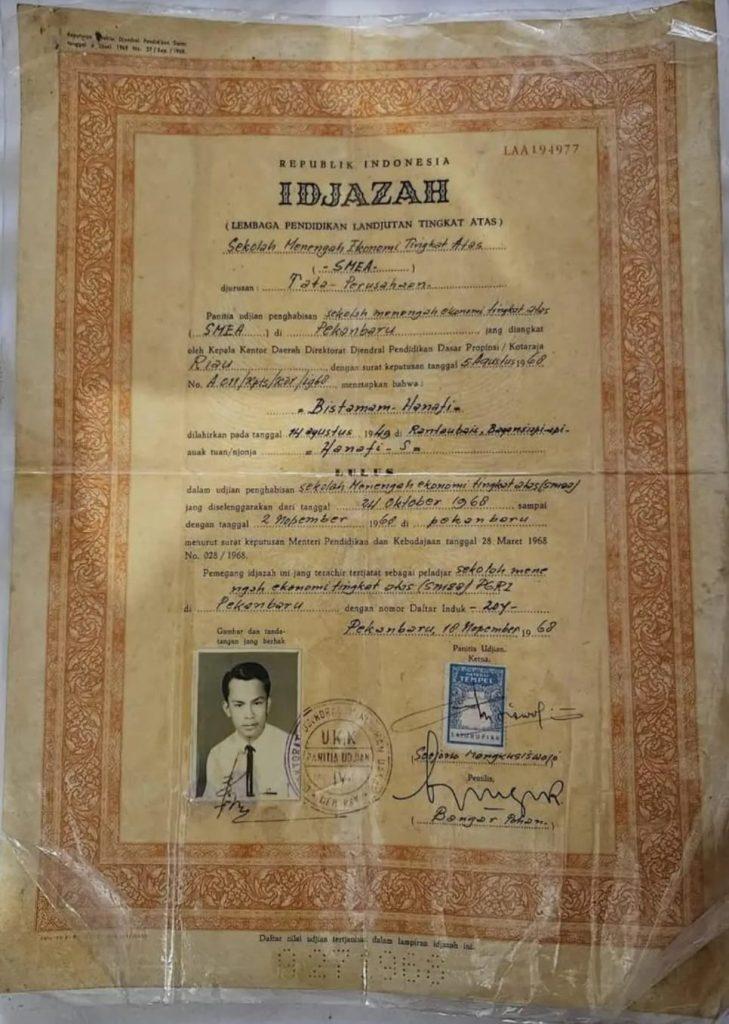 Keputusan Direktur Djendral Pendidikan Dasar
tanggal 6 Djuni 1968 No. 27/Sep./1968.
LAA194977
REPUBLIK INDONESIA
IDJAZAH
(LEMBAGA PENDIDIKAN LANDJUTAN TINGKAT ATAS)
Sekolah Menengah Ekonomi Tingkat Atas
( - SMEA - )
djurusan : Tata - Perusahaan.
Panitia udjian penghabisan sekolah menengah ekonomi tingkat atas
( SMEA ) di Pekanbaru jang diangkat
oleh Kepala Kantor Daerah Direktorat Djendral Pendidikan Dasar Propinsi / Kotaraja
Riau dengan surat keputusan tanggal 5 Agustus 1968
No. menetapkan bahwa :
= Bistamam - Hanafi =
dilahirkan pada tanggal 14 agustus 1949 di Rantaubais, Bagansiapi-api-
anak tuan/njonja = Hanafi - S =
LULUS
dalam udjian penghabisan sekolah Menengah ekonomi tingkat atas (smea)
jang diselenggarakan dari tanggal 24 Oktober 1968 sampai
dengan tanggal 2 Nopember 1968 di pekanbaru
menurut surat keputusan Menteri Pendidikan dan Kebudajaan tanggal 28 Maret 1968
No. 028 / 1968.
Pemegang idjazah ini jang terachir tertjatat sebagai peladjar sekolah mene
ngah ekonomi tingkat atas (smea) PGRI
di Pekanbaru dengan nomor Daftar Induk - 204 -
Pekanbaru, 18 Nopember 1968
Gambar dan tanda-
tangan jang berhak
Panitia Udjian.
Ketua,
TEMPEL
U.K.K
PANITIA UDJIAN
IV
Soejono Mangkusiswojo
Penilis,
( Bangar Pohan. )
Daftar nilai udjian tertjantum dalam lampiran idjazah ini.